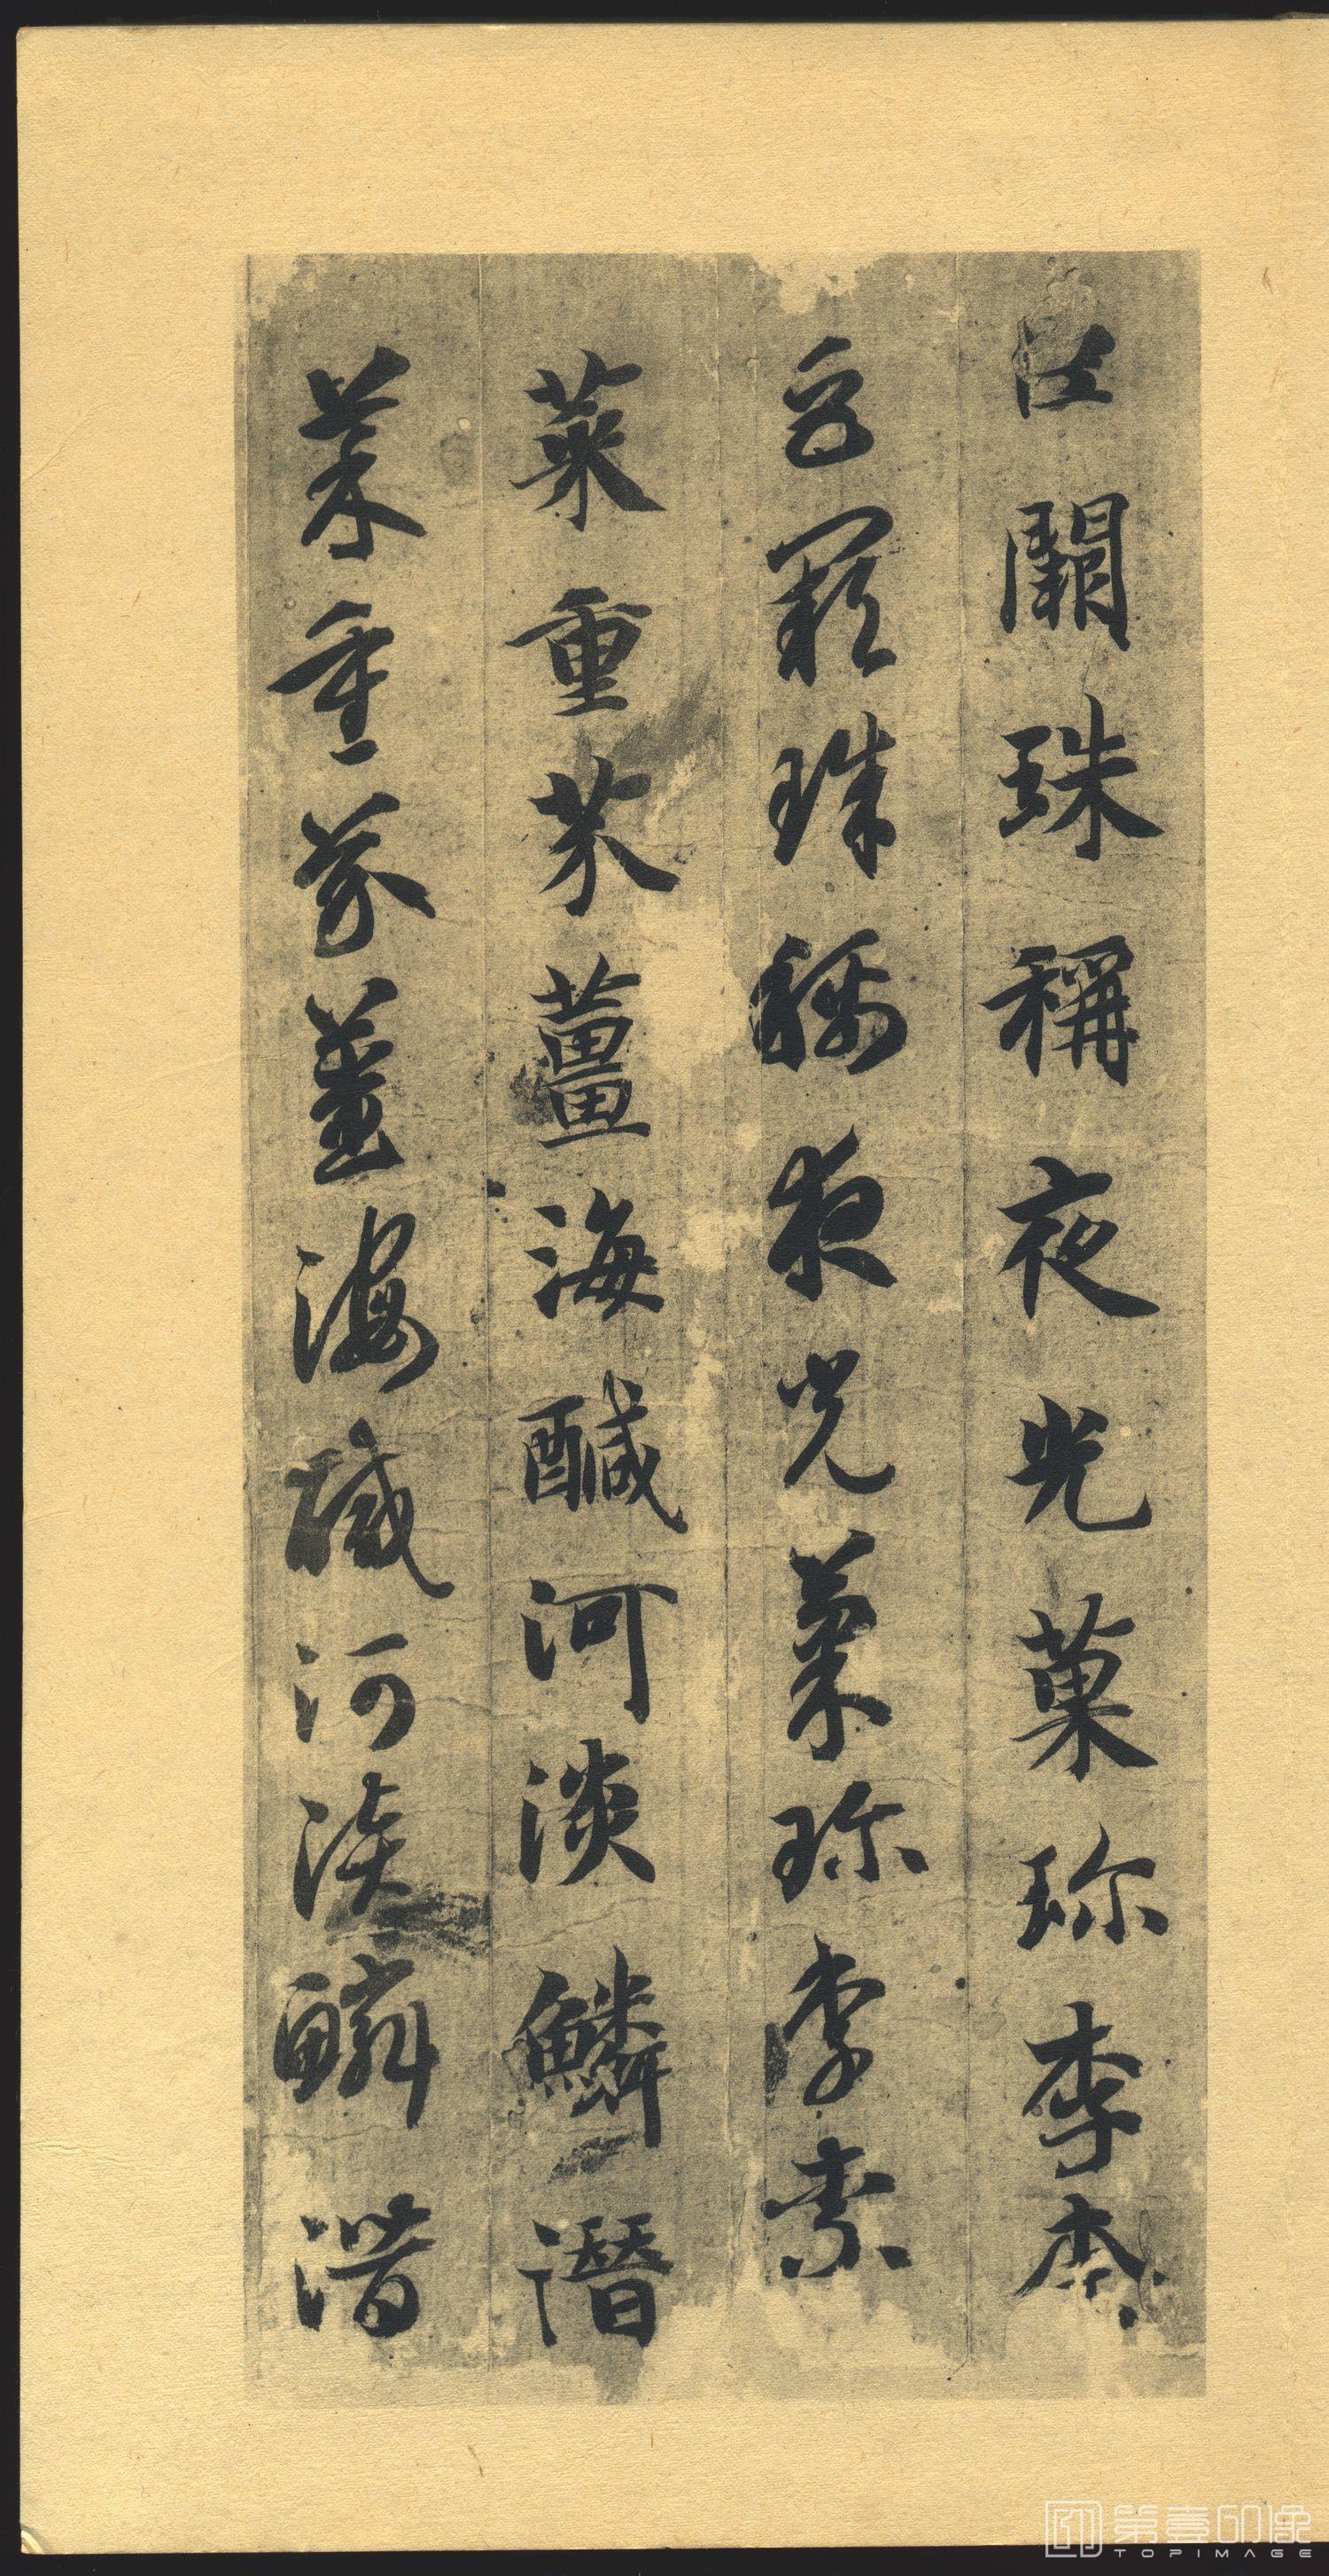 巨闕珠稱夜光菓珎李柰
巨闕珠稱夜光菓珎李柰
菜重芥薑海醎河淡鱗潛
菜重芥薑海醎河淡鱗潛
第壹印像
TOPIMAGE